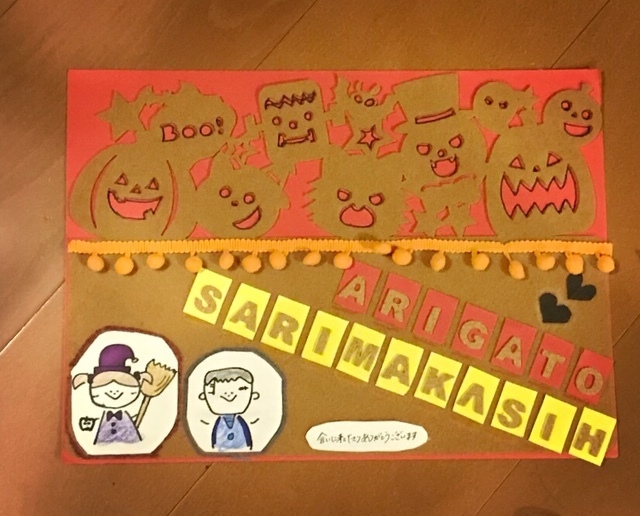 BOO!
ARIGATO
SARIMAKASIH
会いに来てくれてありがとうございます